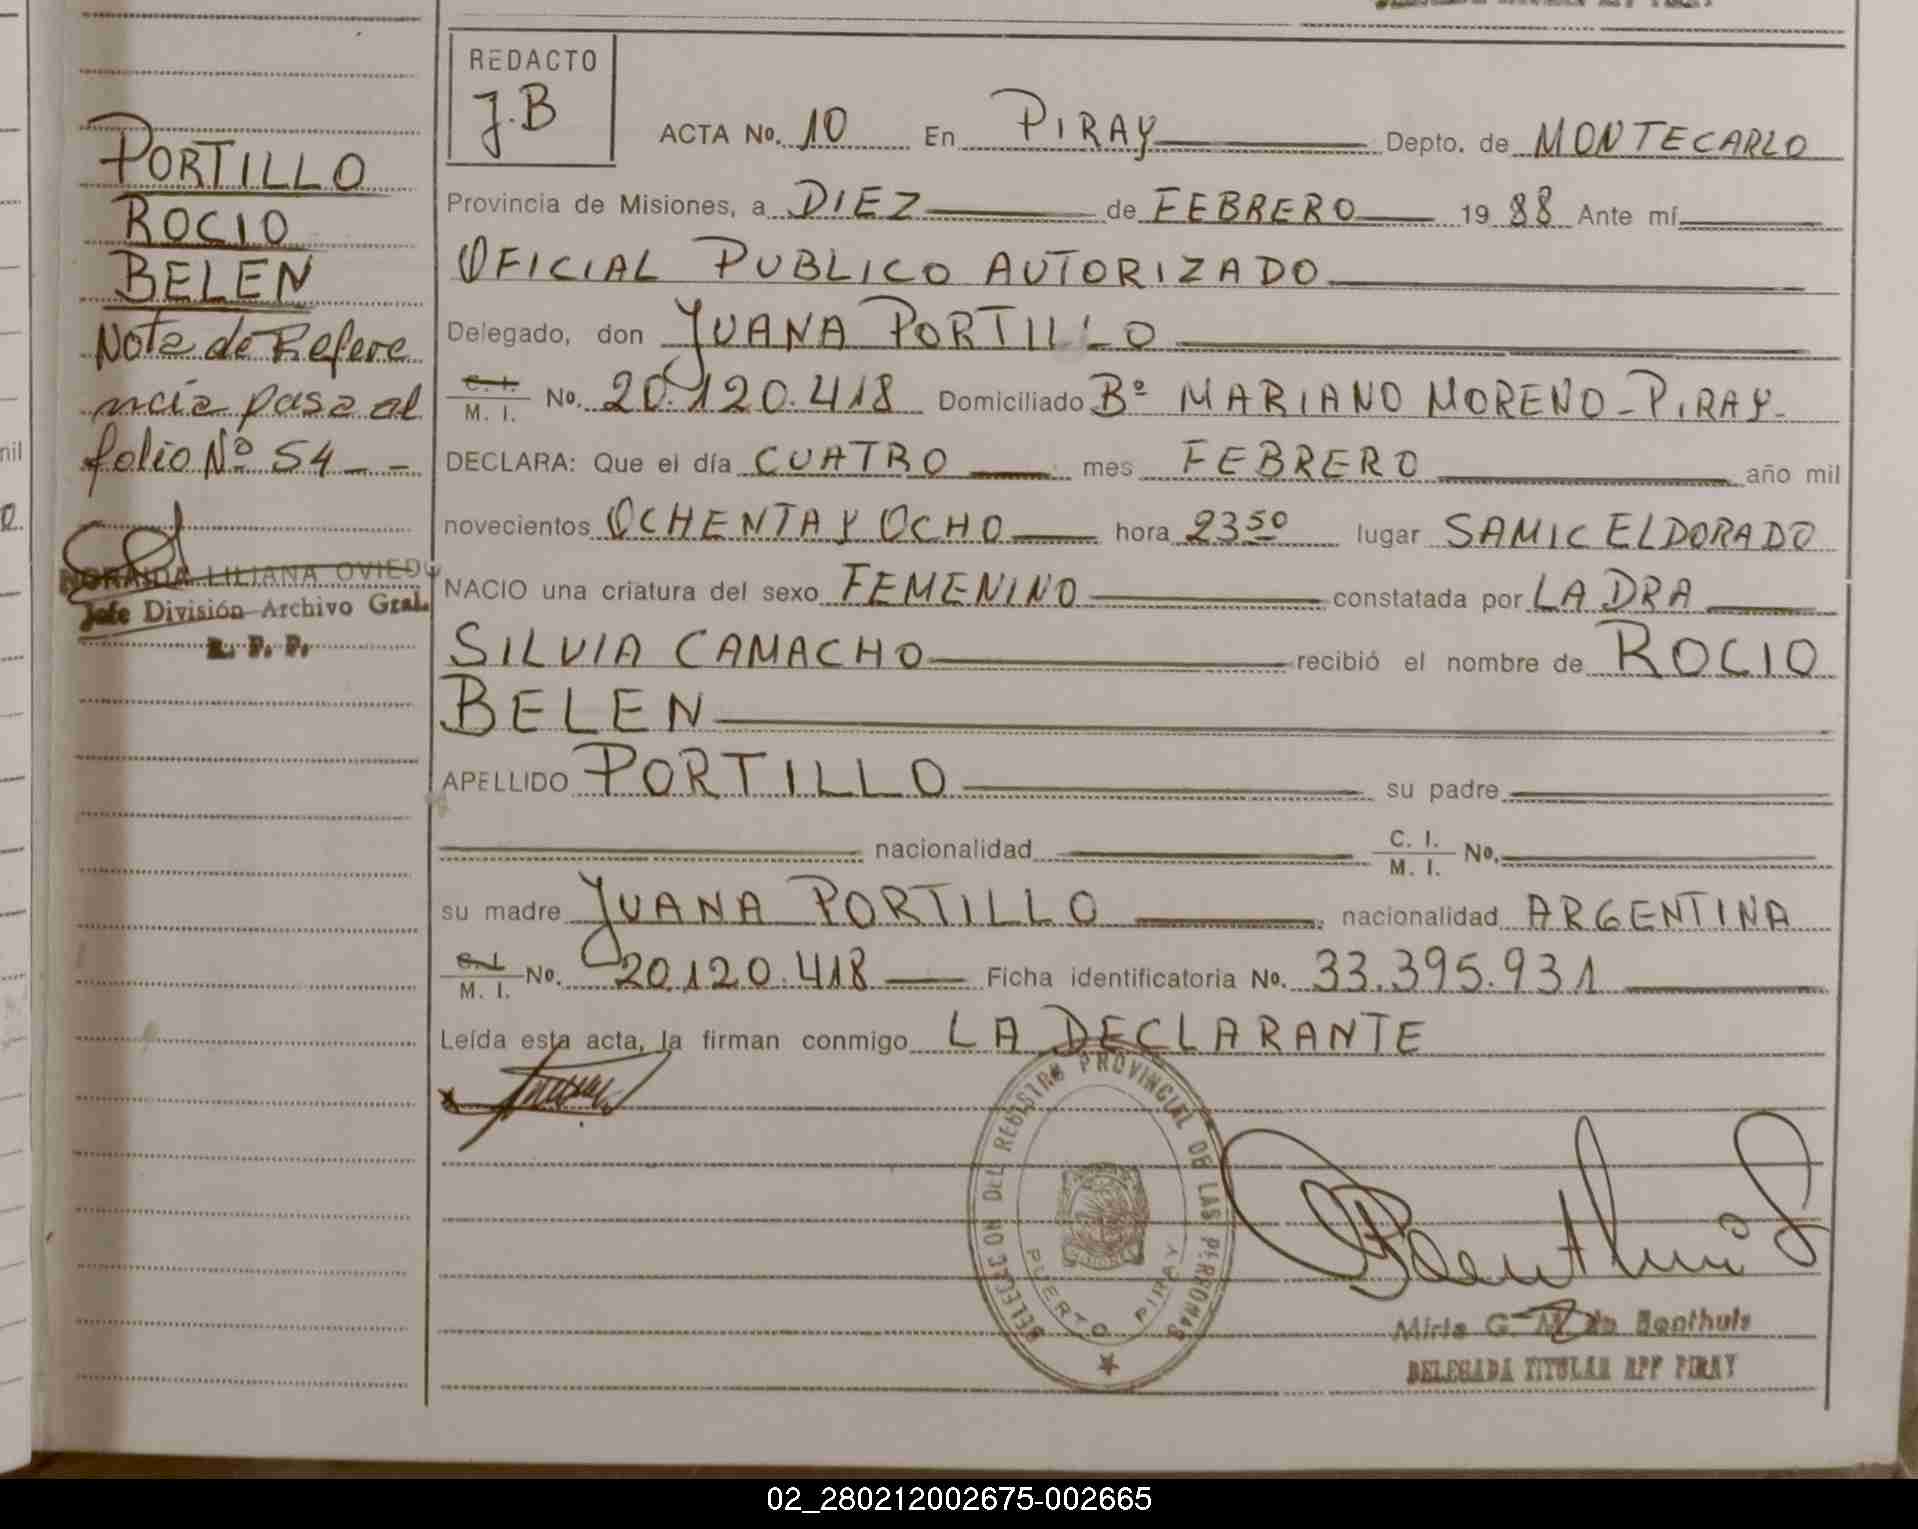 REDACTO
J.B
ACTA No. 10 En PIRAY Depto. de MONTECARLO
Provincia de Misiones, a DIEZ de FEBRERO 1988 Ante mí
OFICIAL PUBLICO AUTORIZADO
Delegado, don JUANA PORTILLO
C. I. M. I. No. 20.120.418 Domiciliado Bº MARIANO MORENO-PIRAY-
DECLARA: Que el día CUATRO mes FEBRERO año mil
novecientos OCHENTA Y OCHO hora 23 50 lugar SAMIC ELDORADO
NACIO una criatura del sexo FEMENINO constatada por LA DRA
SILVIA CAMACHO recibió el nombre de ROCIO
BELEN
APELLIDO PORTILLO su padre
nacionalidad C. I. M. I. No.
su madre JUANA PORTILLO nacionalidad ARGENTINA
C. I. M. I. No. 20.120.418 Ficha identificatoria No. 33.395.931
Leída esta acta, la firman conmigo LA DECLARANTE
PORTILLO
ROCIO
BELEN
Nota de Refere
ncia pasa al
folio Nº 54 - -
NORAIDA LILIANA OVIEDO
Jefe División Archivo Gral.
R. P. P.
DELEGACION DEL REGISTRO PROVINCIAL DE LAS PERSONAS
PUERTO PIRAY
Mirta G. M. de Benthuis
DELEGADA TITULAR RPP PIRAY
02_280212002675-002665